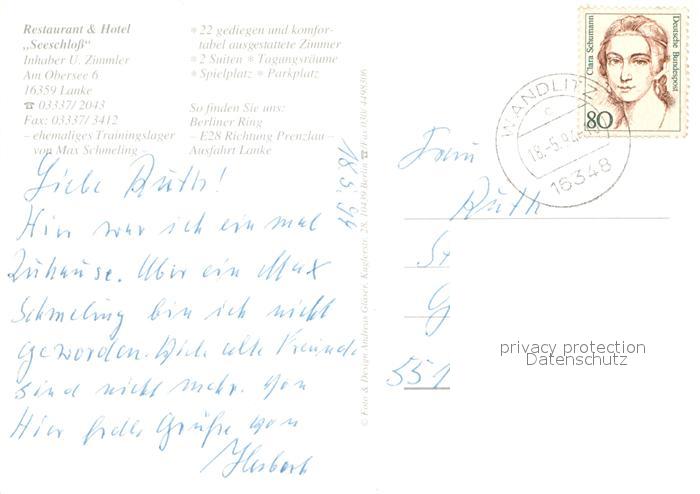 Restaurant & Hotel
„Seeschloß“
Inhaber U. Zimmler
Am Obersee 6
16359 Lanke
☎ 03337/ 2043
Fax: 03337/ 3412
– ehemaliges Trainingslager
von Max Schmeling –
* 22 gediegen und komfor-
tabel ausgestattete Zimmer
* 2 Suiten * Tagungsräume
* Spielplatz * Parkplatz
So finden Sie uns:
Berliner Ring
– E28 Richtung Prenzlau –
Ausfahrt Lanke
18.5.94
Liebe Ruth!
Hier war ich ein mal
Zuhause. Aber ein Max
Schmeling bin ich nicht
geworden. Die alte Freunde
sind nicht mehr. Von
Hier Grüße von
© Foto & Design Andreas Gläser, Kuglerstr. 28, 10439 Berlin ☎ Fax (030) 4498806
Clara Schumann
Deutsche Bundespost
80
WANDLITZ
c
18.-5.94
16348
Frau
Ruth
St
G
551
privacy protection
Datenschutz